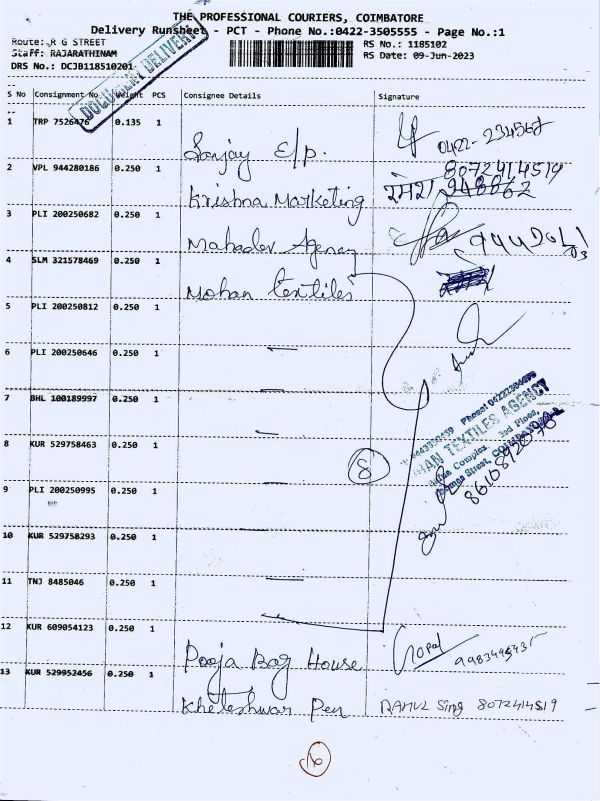 THE PROFESSIONAL COURIERS, COIMBATORE
Delivery Runsheet - PCT - Phone No.:0422-3505555 - Page No.:1
Route: R G STREET
RS No.: 1185102
Staff: RAJARATHINAM
RS Date: 09-Jun-2023
DRS No.: DCJB118510201
DOCUMENT DELIVERY
S No Consignment No. Weight PCS Consignee Details Signature
1 TRP 7526476 0.135 1 Sanjay E/p. 0422-234567
2 VPL 944280186 0.250 1 Krishna Marketing 8072414519
रमेश
3 PLI 200250682 0.250 1 Mahadev Agency
4 SLM 321578469 0.250 1 Mohan Textiles
5 PLI 200250812 0.250 1
6 PLI 200250646 0.250 1
7 BHL 100189997 0.250 1
MOHAN TEXTILES AGENCY
Complex 3rd Floor,
8 KUR 529758463 0.250 1
8
9 PLI 200250995 0.250 1
10 KUR 529758293 0.250 1
11 TNJ 8485046 0.250 1
12 KUR 609054123 0.250 1 Pooja Bag House Gopal
13 KUR 529952456 0.250 1 Kheteshwar Pen RAHUL Sing 8072414519